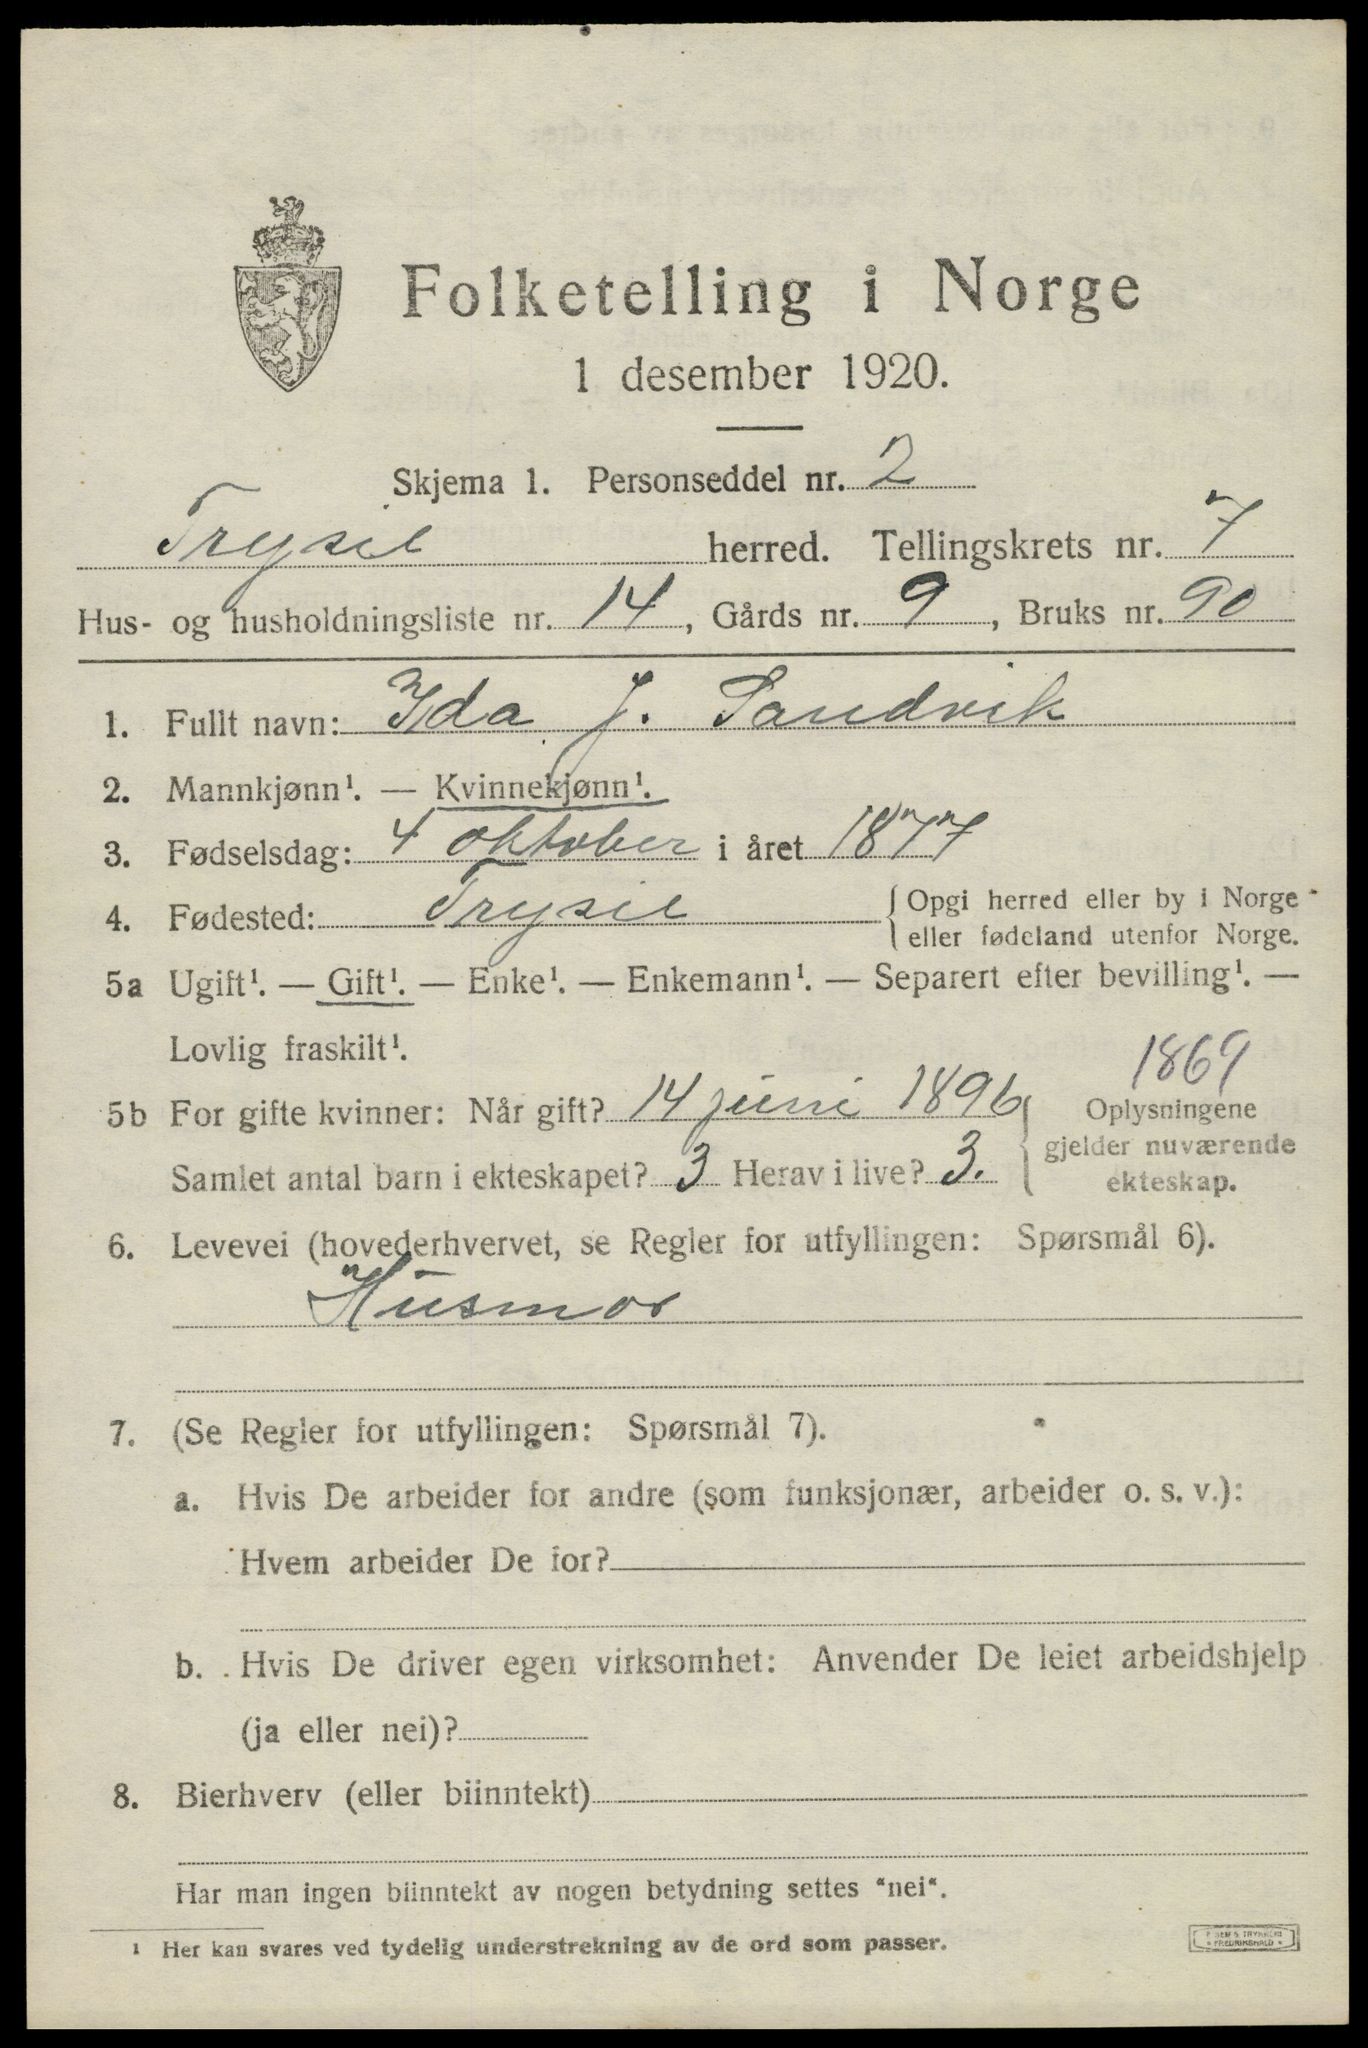 Folketelling i Norge
1 desember 1920.
Skjema 1. Personseddel nr. 2
Trysil herred. Tellingskrets nr. 7
Hus- og husholdningsliste nr. 14, Gårds nr. 9, Bruks nr. 90
1. Fullt navn: Ida J. Sandvik
2. Mannkjønn¹. — Kvinnekjønn¹.
3. Fødselsdag: 4 oktober i året 1877
4. Fødested: Trysil { Opgi herred eller by i Norge
eller fødeland utenfor Norge.
5a Ugift¹. — Gift¹. — Enke¹. — Enkemann¹. — Separert efter bevilling¹. —
Lovlig fraskilt¹.
1869
5b For gifte kvinner: Når gift? 14 juni 1896 { Oplysningene
gjelder nuværende
Samlet antal barn i ekteskapet? 3 Herav i live? 3. ekteskap.
6. Levevei (hovederhvervet, se Regler for utfyllingen: Spørsmål 6).
Husmor
7. (Se Regler for utfyllingen: Spørsmål 7).
a. Hvis De arbeider for andre (som funksjonær, arbeider o. s. v.):
Hvem arbeider De for?
b. Hvis De driver egen virksomhet: Anvender De leiet arbeidshjelp
(ja eller nei)?
8. Bierhverv (eller biinntekt)
Har man ingen biinntekt av nogen betydning settes "nei".
¹ Her kan svares ved tydelig understrekning av de ord som passer.
TRYKKERI
FREDRIKSHALD